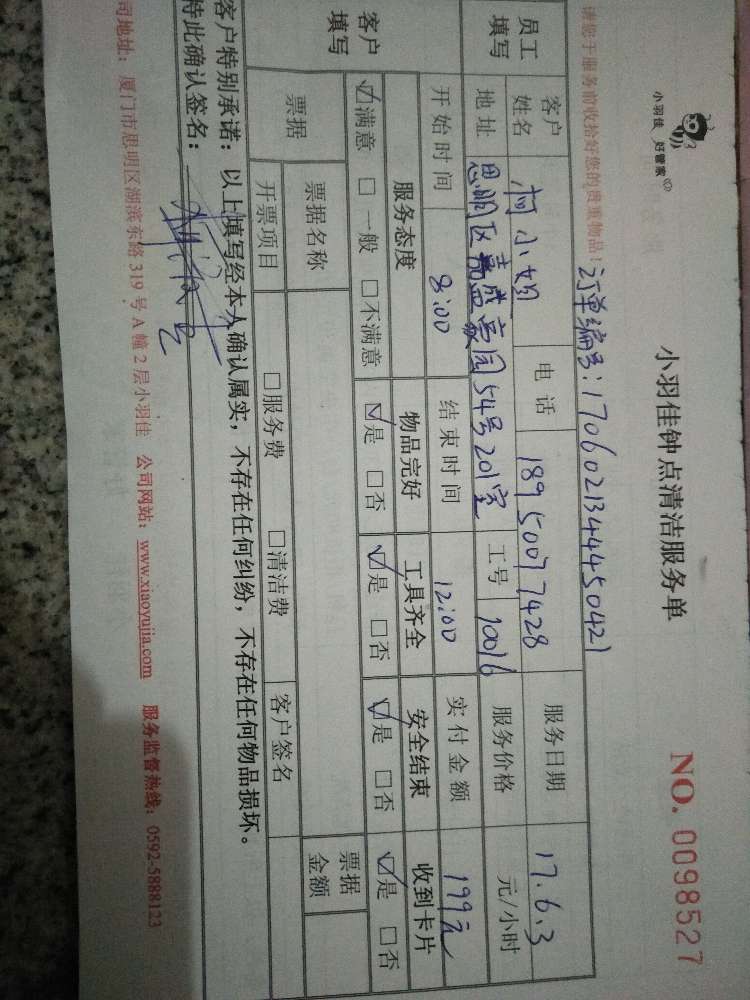 小羽佳 好管家
小羽佳钟点清洁服务单
NO. 0098527
订单编号:1706021344450421
请您于服务前收拾好您的贵重物品!
员工填写 客户姓名 柯小姐 电话 18950077428 服务日期 17.6.3
地址 思明区嘉盛豪园54号201室 工号 10016 服务价格 元/小时
开始时间 8:00 结束时间 12:00 实付金额 199元
客户填写 服务态度 物品完好 工具齐全 安全结束 收到卡片
☑满意 □一般 □不满意 ☑是 □否 ☑是 □否 ☑是 □否 ☑是 □否
票据 票据名称 票据金额
开票项目 □服务费 □清洁费 客户签名
客户特别承诺:以上填写经本人确认属实,不存在任何纠纷,不存在任何物品损坏。
特此确认签名:
司地址:厦门市思明区湖滨东路319号A幢2层小羽佳 公司网站:www.xiaoyujia.com 服务监督热线:0592-5888123